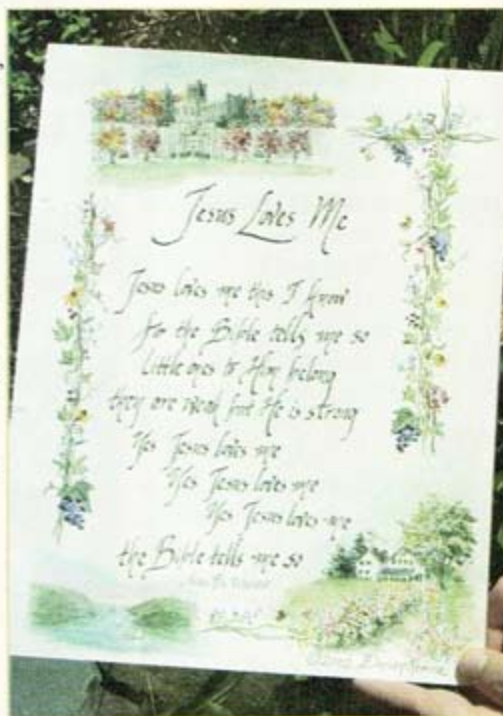 Jesus Loves Me
Jesus loves me this I know
for the Bible tells me so
Little ones to Him belong
they are weak but He is strong
Yes Jesus loves me
Yes Jesus loves me
Yes Jesus loves me
the Bible tells me so